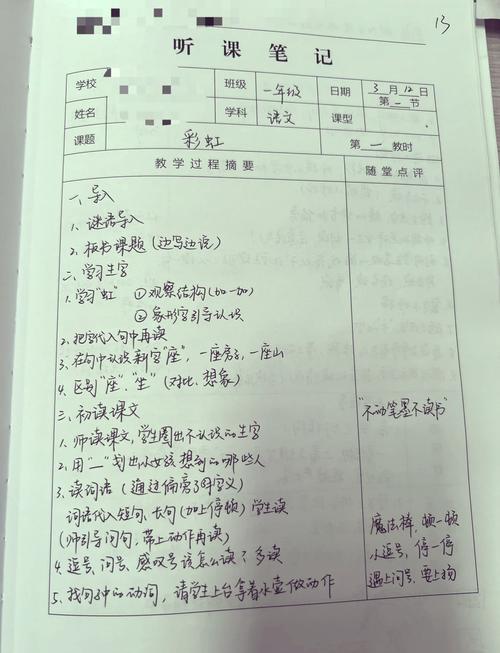 13
听课笔记
学校 班级 一年级 日期 3月12日 第一节
姓名 学科 语文 课型
课题 彩虹 第一教时
教学过程摘要 随堂点评
一、导入
1、谜语导入
2、板书课题(边写边说)
二、学习生字
1.学习"虹" ①观察结构(加一加)
②象形字引导认识
2、把字代入句中再读
3、在句中认识新字"座",一座房子,一座山
4、区别"座"、"坐"(对比、想象)
三、初读课文
1、师读课文,学生圈出不认识的生字
2、用"—"划出小女孩想到的哪些人
3、读词语(通过偏旁了解字义)
词语代入短句、长句(加上停顿)学生读
(师引导问句,带上动作再读)
4、逗号、问号、感叹号该怎么读?多读
5、找句中的动词,请学生上台拿着水壶做动作
"不动笔墨不读书"
魔法棒,顿一顿
小逗号,停一停
遇上问号,要上扬